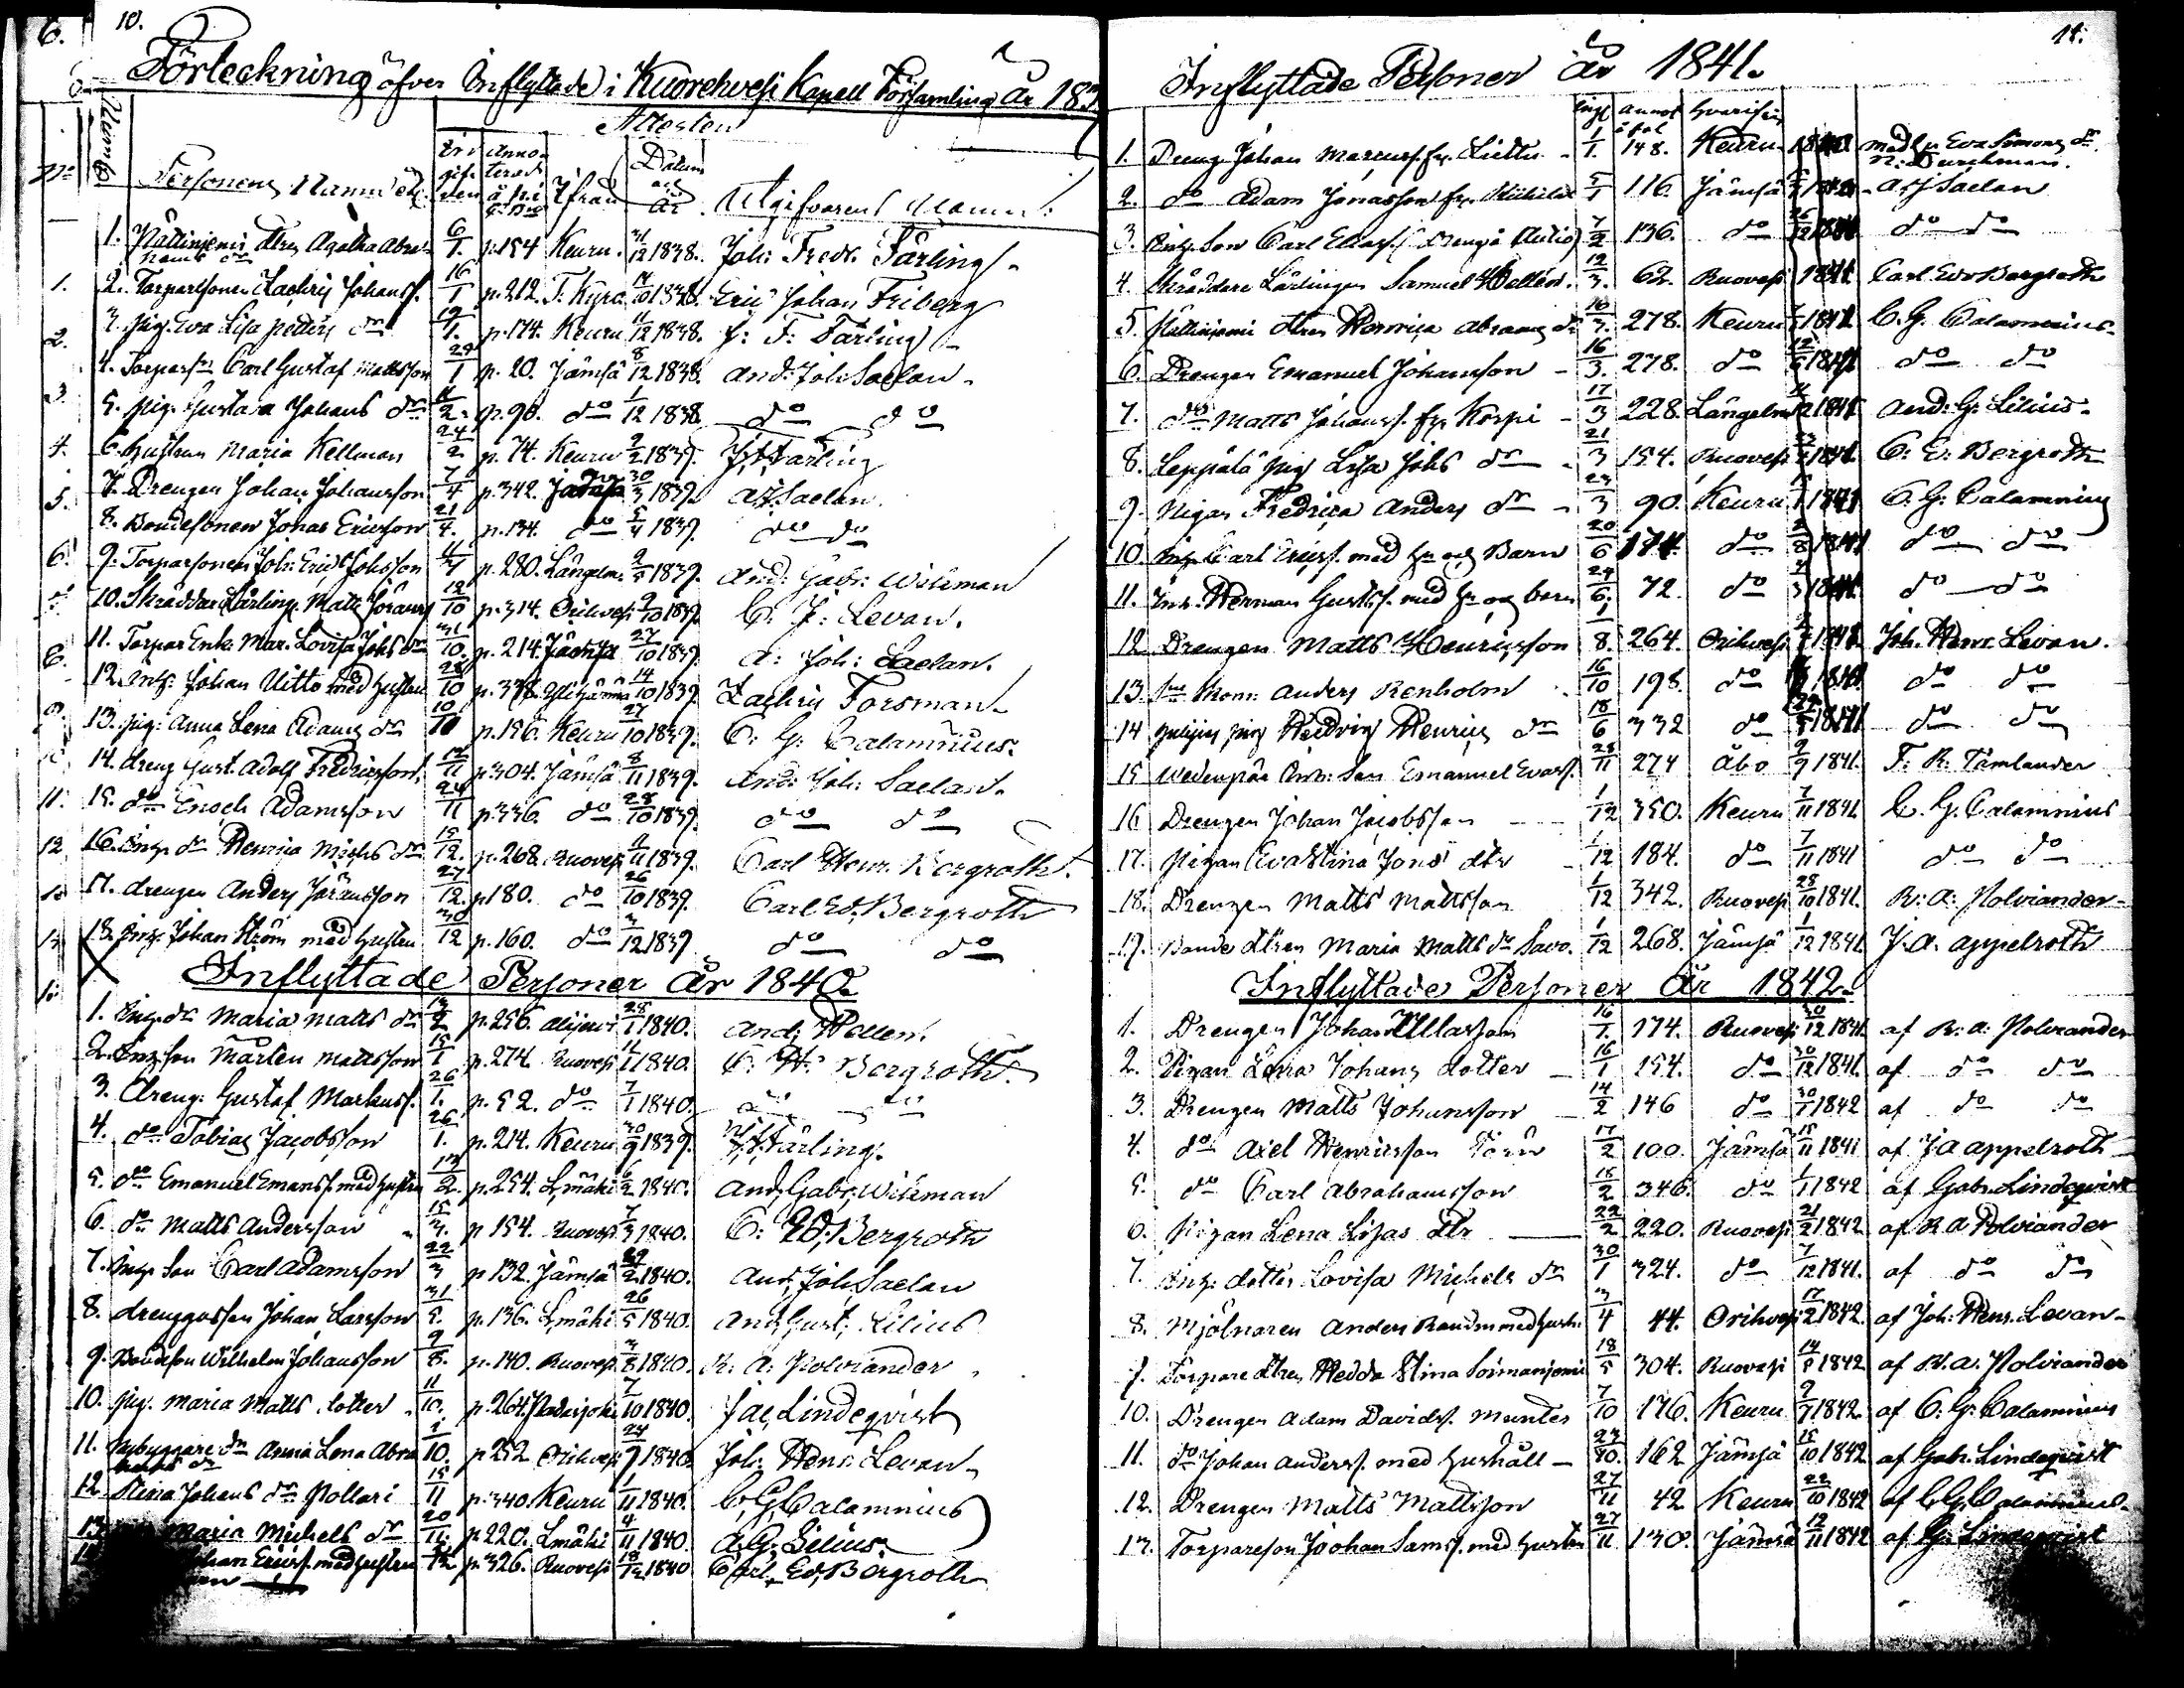 6. 10.
Förteckning öfver Inflyttade i Kuorehvesi Kapell Församling År 183
Attesten
No Personens Namn etc. Ifrån Datum och År Utgifvarens Namn.
1. Pällinjemi dtren Agatha Abra- 6/1. p. 154 Keuru. 31/12 1838. Joh: Fredr. Färling
hams dr
2. Torparsonen Zachris Johansf. 16/1 p. 212. T. Kyro 14/10 1838. Eric Johan Friberg
3. Pig. Eva Lisa Petters dr 19/1. p. 174. Keuru 11/12 1838. J: F: Färling
4. Torpars. Carl Gustaf Mattsson 29/1 p. 20. Jämsä 8/12 1838. And: Joh Saelan
5. Pig. Gustava Johans dr 11/2. p. 90. do 1/12 1838. do do
6. Hustrun Maria Kellman 24/2 p. 74. Keuru 9/2 1839. J. F. Färling
7. Drengen Johan Johansson 7/4 p. 342. Jämsä 30/3 1839. A. J. Saelan.
8. Bondesonen Jonas Ericsson 21/4. p. 134. do 5/4 1839. do do
9. Torparsonen Joh: Eric Johsson 11/7 p. 280. Längelm. 9/5 1839. And: Gabr: Wikman
10. Skräddar Lärling. Matts Görans 12/10 p. 314. Orihvesi 9/10 1839. C. J: Levan.
11. Torpar Enk. Mar. Lovisa Johs dr 31/10. p. 214. Jämsä 27/10 1839. A: Joh: Saelan.
12. Inh: Johan Uitto med hustru 28/10 p. 338. Ylihärmä 14/10 1839. Zachris Forsman
13. Pig: Anna Lena Adams dr 10/11 p. 156. Keuru 27/10 1839. C: G: Calamnius.
14. dreng Gust. Adolf Fredricsson. 17/11 p. 304. Jämsä 8/11 1839. And: Joh: Saelan.
15. do Enoch Adamsson 24/11 p. 336. do 28/10 1839. do do
16. Inh. dr Henrica Michs dr 15/12. p. 268. Ruovesi 1/11 1839. Carl Henr. Bergroth.
17. drengen Anders Göransson 27/12. p 180. do 26/10 1839. Carl Ed. Bergroth
18. Inh. Johan Ström med hustru 30/12 p. 160. do 3/12 1839 do do
Inflyttade Personer År 1840.
1. Inh. dr Maria Matts dr p. 256. 28/1 1840. And: Hellen.
2. Inh. son Mårten Mattsson 15/1 p. 274. Ruovesi 11/1 1840. C. H: Bergroth.
3. Dreng: Gustaf Markusf. 26/1. p. 52. do 7/1 1840. do do
4. do Tobias Jacobsson 26/1. p. 214. Keuru 30/9 1839. J. F. Färling.
5. do Emanuel Emansf. med hustru 17/2. p. 254. L,mäki 6/2 1840. And, Gabr, Wikman
6. do Matts Andersson 15/3. p 154. Ruovesi 7/3 1840. C: Ed, Bergroth
7. Inh. son Carl Adamsson 22/3 p 132. Jämsä 29/2 1840. And, Joh Saelan
8. drenggossen Johan Larsson 31/5. p. 136. L,mäki 26/5 1840. And, Gust, Lilius
9. Bondeson Wilhelm Johansson 9/8. p. 140. Ruovesi 3/8 1840. R. A: Polviander
10. Pig. Maria Matts dotter 11/10. p. 264. Padasjoki 7/10 1840. Jac, Lindeqvist
11. Nybyggare dr Anna Lena Abra 1/10. p 252 Orihvesi 24/9 1840. Joh: Henr Levan
hams dr
12. Stina Johans dr Pollari 15/11 p. 340. Keuru 1/11 1840. C, G, Calamnius
13. Maria Michels dr 20/11. p 220. L,mäki 4/11 1840. A. G. Lilius.
Johan Ericsf. med hustru 12. p. 326. Ruovesi 18/12 1840 Carl, Ed, Bergroth
11.
Inflyttade Personer År 1841.
Infl annot å fol hvarifrån
1. Dreng Johan Marcusf. fr. 1/1. 148. Keuru 1840 med hu Eva Simons dr
2. do Adam Jonasson fr. 5/1 116. Jämsä A J Saelan
3. Inh. Son Carl Eliasf. 7/2 136. do do do
4. Skräddare Lärlingen Samuel Hellén. 12/3. 62. Ruovesi 1841. Carl Edv Bergroth
5. Pällinjemi dtren Henrica Abrams dr 16/3. 278. Keuru 1841 C. G. Calamnius
6. Drengen Emanuel Johansson 16/3. 278. do 1841 do do
7. do Matts Johansf. fr. Korpi 17/3 228. Längelm 1841 And: G. Lilius
8. Leppälä Pig Lisa Johs dr 21/3 154. Ruovesi 1841. C: E: Bergroth
9. Pigan Fredrica Anders dr 23/3 90. Keuru 1841 C. G. Calamnius
10. Inh. Carl Ericsf. med hu och Barn 20/6 174. do 2/8 1841 do do
11. Inh. Herman Gustsf. med hu och barn 24/6. 72. do 1841. do do
12 Drengen Matts Henricsson 1/8. 264. Orihvesi 1841. Joh. Henr. Levan.
13. Anders Renholm 16/10 198. do do do
14 Pig Hedvig Henrics dr 18/6 332 do 1841 do do
15 Wedenpää Inh. Son Emanuel Evasf. 28/11 274 Åbo 9/9 1841. F. R. Tamlander
16 Drengen Johan Jacobsson 1/12 350. Keuru 7/11 1841. C. G. Calamnius
17. Pigan Eva Stina Jons dtr 1/12 184. do 7/11 1841 do do
18. Drengen Matts Mattsson 1/12 342. Ruovesi 28/10 1841. R: A: Polviander
19. Bonde dtren Maria Matts dr Savo. 1/12 268. Jämsä 1/12 1841. J. A. Appelroth
Inflyttade Personer År 1842.
1. Drengen Johan Ullasson 16/1. 174. Ruovesi 30/12 1841. af R: A: Polviander
2. Pigan Lena Johans dotter 16/1 154. do 30/12 1841. af do do
3. Drengen Matts Johansson 14/2 146 do 30/1 1842 af do do
4. do Axel Henricsson Törn 17/2 100. Jämsä 15/11 1841 af J A Appelroth
5. do Carl Abrahamsson 18/2 346. do 1/1 1842 af Gabr. Lindeqvist
6. Pigan Lena Lisas dtr 22/2 220. Ruovesi 21/2 1842 af R A Polviander
7. Inh. dotter Lovisa Michels dr 30/1 324. do 7/12 1841. af do do
8. Mjölnaren Anders med hustr. 3/4 44. Orihvesi 17/2 1842. af Joh: Henr. Levan
9. Torpare dtren Hedda Stina 18/5 304. Ruovesi 14/5 1842 af R. A. Polviander
10. Drengen Adam Davidsf. Munter 7/10 176. Keuru 9/7 1842. af C: G: Calamnius
11. do Johan Andersf. med hushåll 23/10. 162 Jämsä 15/10 1842 af Gabr. Lindeqvist
12. Drengen Matts Mattsson 27/11 42 Keuru 22/10 1842 af C. G. Calamnius
13. Torpareson Joohan Samsf. med hustru 27/11 130. Jämsä 12/11 1842 af G: Lindeqvist